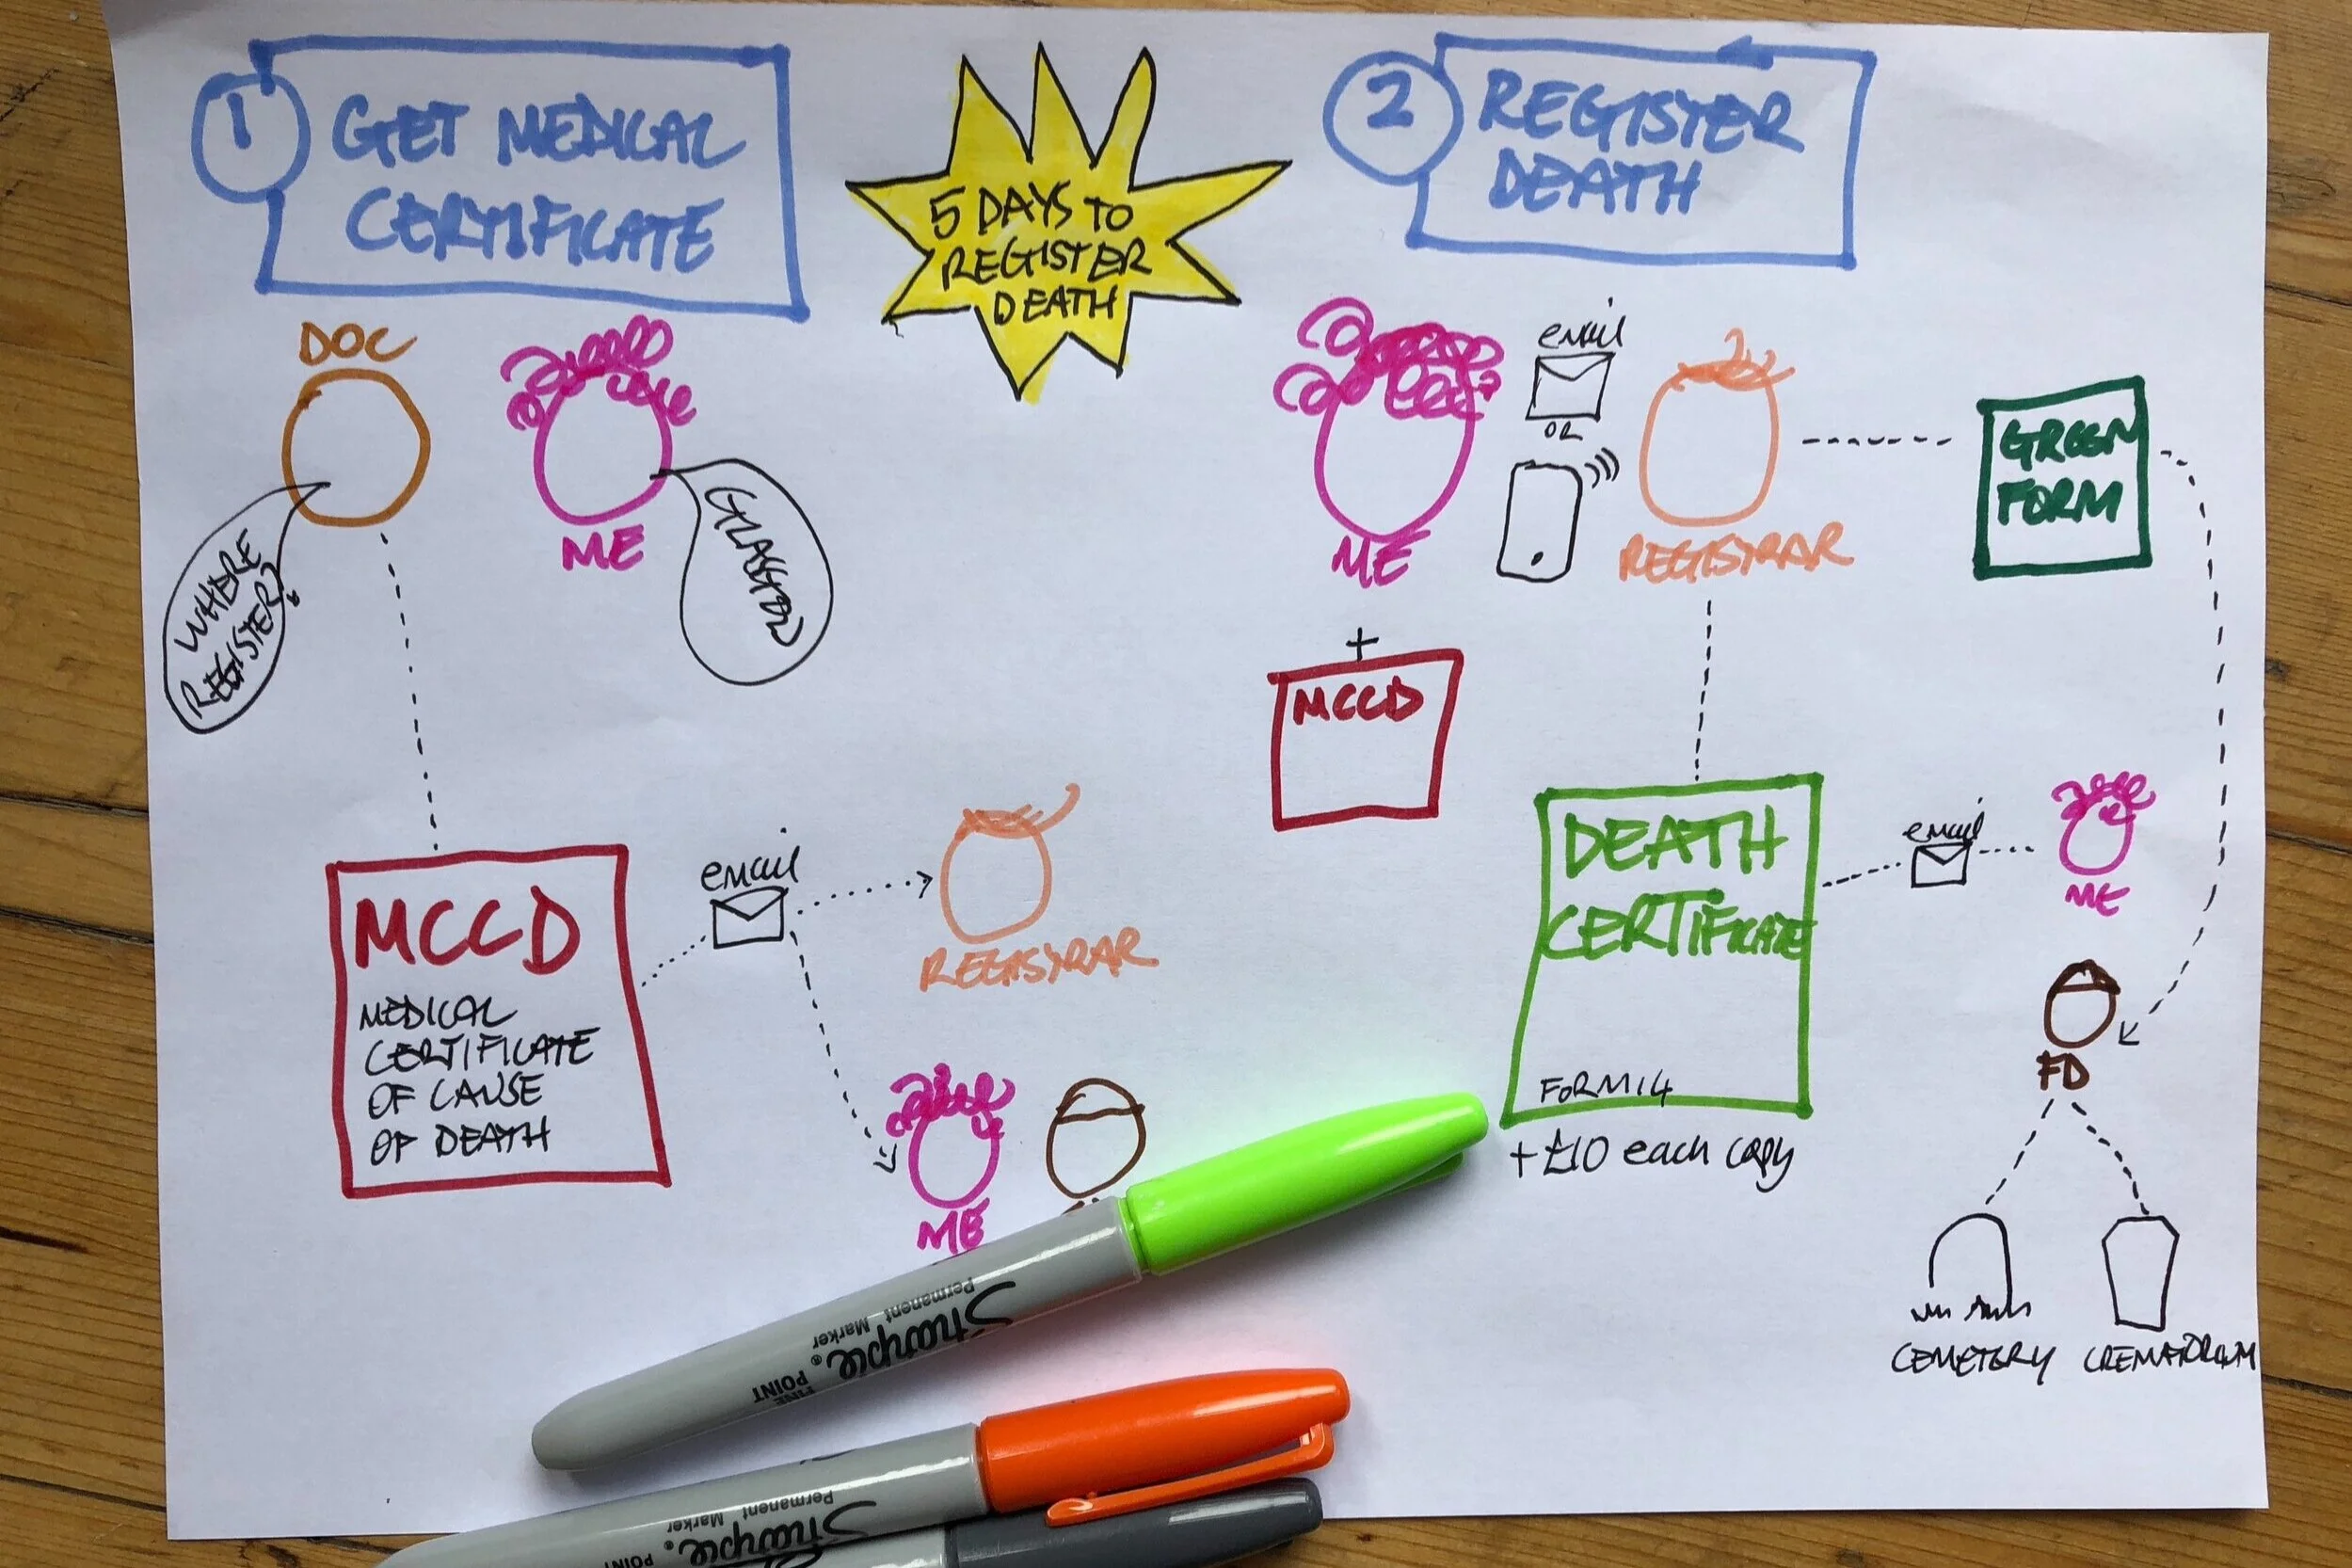 1
GET MEDICAL
CERTIFICATE
5 DAYS TO
REGISTER
DEATH
2
REGISTER
DEATH
DOC
ME
WHERE
REGISTER?
GLASGOW
MCCD
MEDICAL
CERTIFICATE
OF CAUSE
OF DEATH
email
REGISTRAR
ME
ME
email
OR
REGISTRAR
GREEN
FORM
+
MCCD
DEATH
CERTIFICATE
FORM 14
+ £10 each copy
email
ME
FD
CEMETERY
CREMATORIUM
Sharpie®
Permanent
Marker
FINE
POINT
Sharpie®
Permanent
Marker
POINT